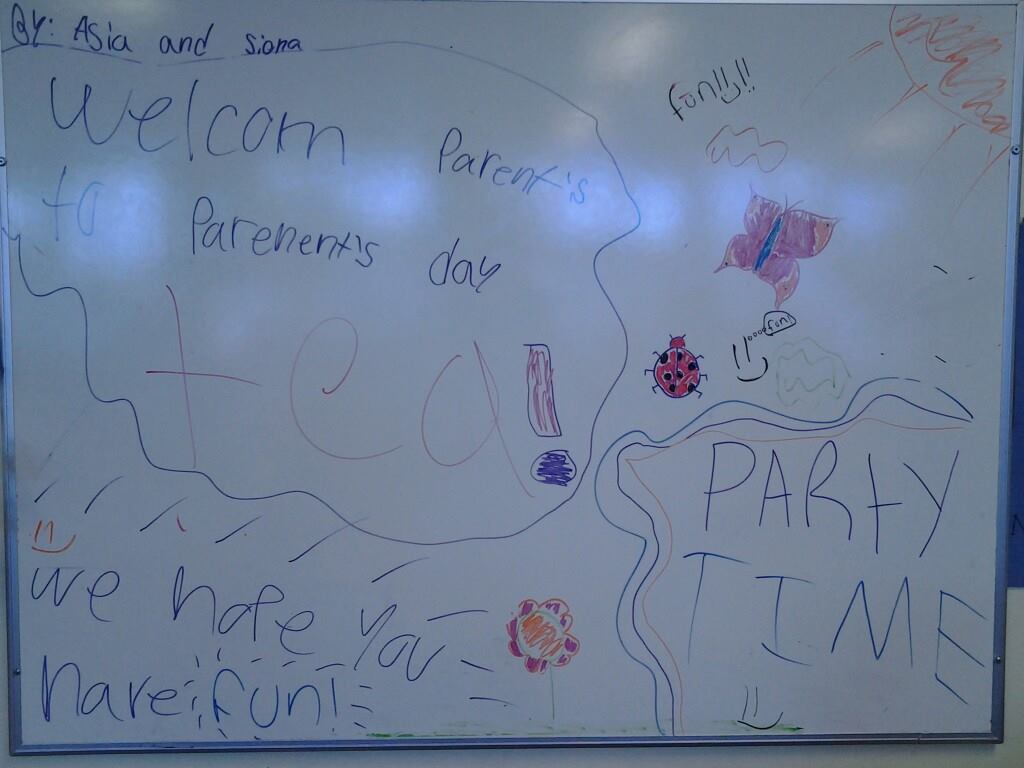 BY: Asia and Siona
Welcom Parent's
to Parenent's day
tea!
fun!!!!
fun!
PARty
TIME
we hope you
have fun!